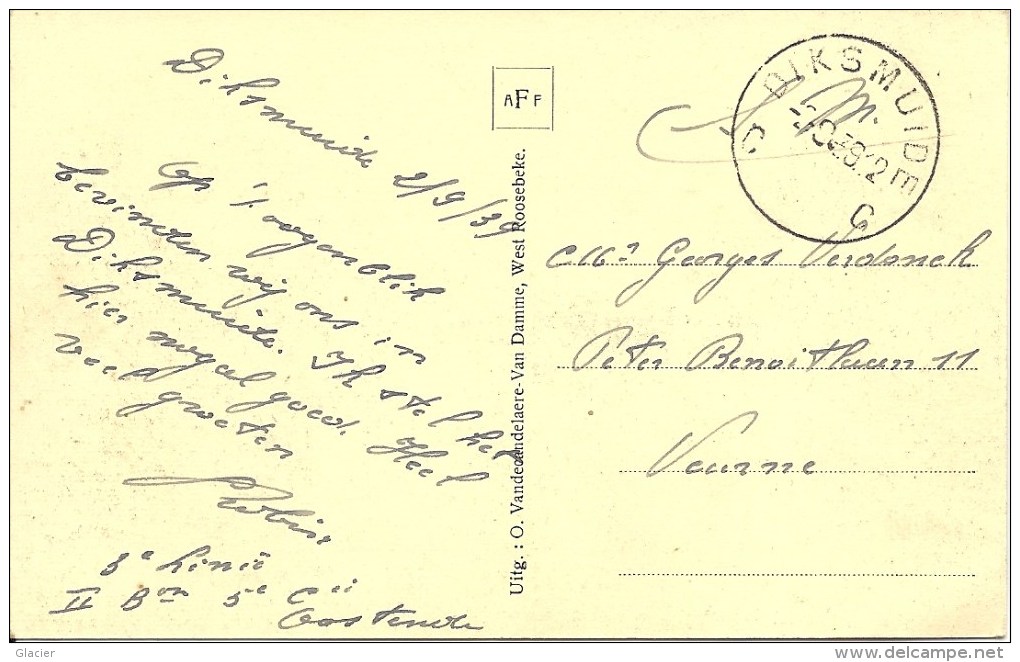 Diksmuide 2/9/39
Op 't oogenblik
bevinden wij ons in
Diksmuide. Ik stel het
hier nogal goed. Heel
veel groeten
3e Linie
II Bon 5e Cie
Oostende
AFF
Uitg. : O. Vandecandelaere-Van Damme, West Roosebeke.
C DIKSMUIDE C
Georges Verdonck
Peter Benoitlaan 11
Veurne
Glacier
delcampe.net